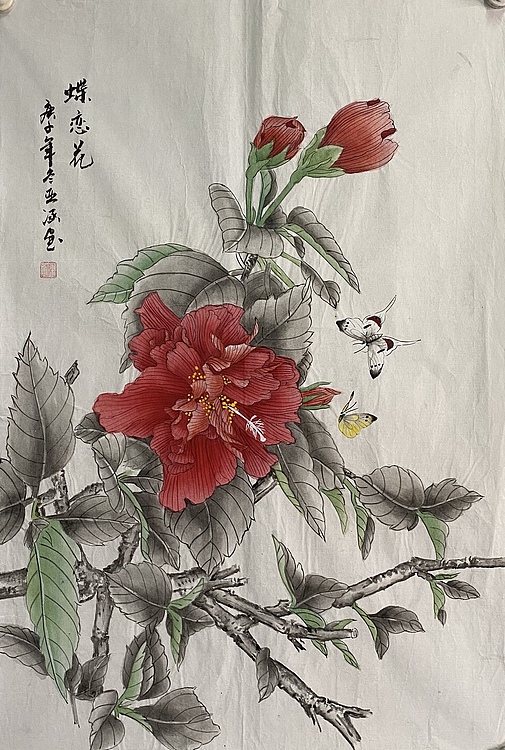 蝶恋花
庚子年冬亚涵画